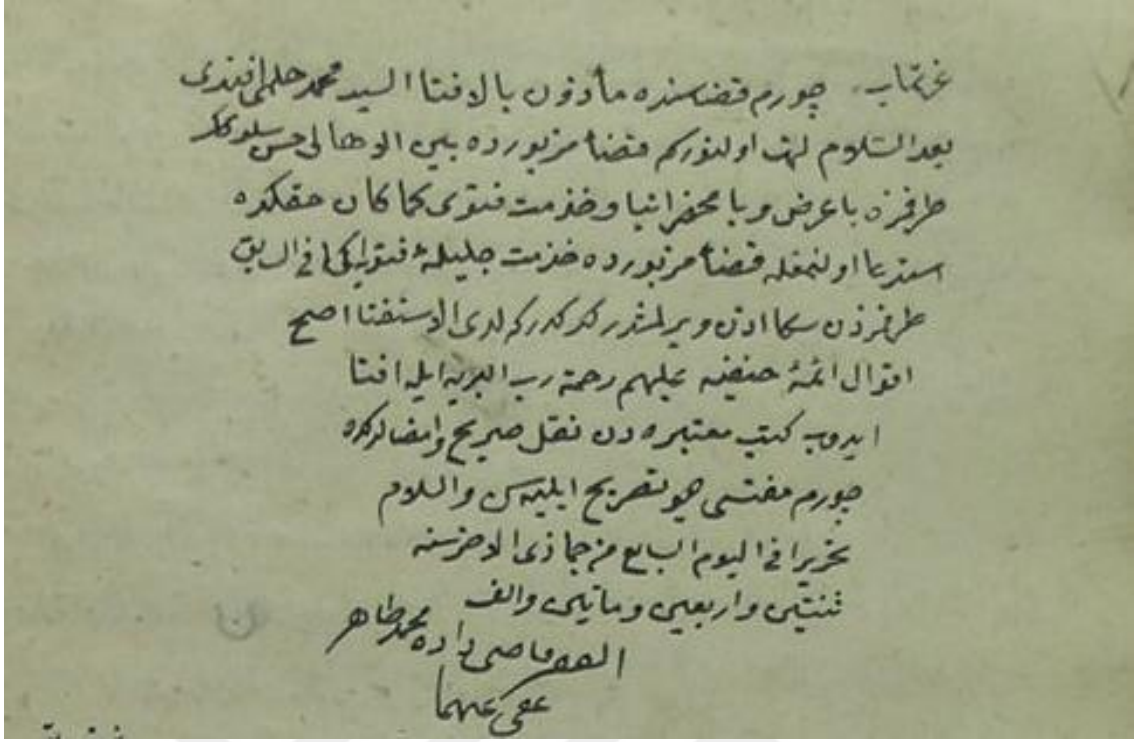 عزتمآب چورم قضاسنده مأذون بالافتا السيد محمد حلمی افندی
بعد السلام انها اولنوركه قضاء مزبورده بين الاهالی حسن سلوككز
طرفمزه با عرض وبا محضر انها وخدمت فتوی كما كان حقكده
استدعا اولنمغله قضاء مزبورده خدمت جليلهٔ فتوايه كما فی السابق
طرفمزدن سكا اذن ويرلمشدر كركدركه لدی الاستفتا اصح
اقوال ائمهٔ حنفيه عليهم رحمة رب البريه ايله افتا
ايدوب كتب معتبره دن نقل صريح وامضالركده
چورم مفتيسی ديو تصريح ايليه سن والسلام
تحريرا فی اليوم السابع من جماذی الاخر سنه
ثنتين واربعين ومأتين والف
الفقير قاضی زاده محمد طاهر
عفی عنهما